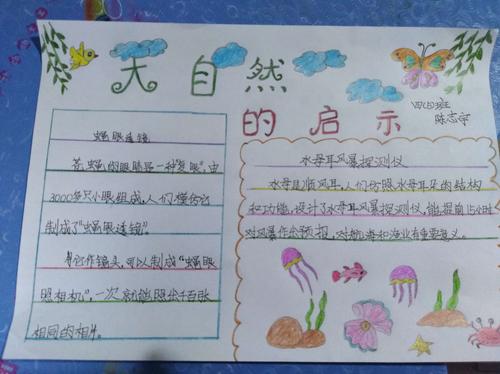 大自然
的启示
四(1)班
陈志宇
蝇眼透镜
苍蝇的眼睛是一种"复眼",由
3000多只小眼组成,人们模仿它
制成了"蝇眼透镜"。
用它作镜头,可以制成"蝇眼
照相机",一次就能照出千百张
相同的相片。
水母耳风暴探测仪
水母是顺风耳,人们仿照水母耳朵的结构
和功能,设计了水母耳风暴探测仪,能提前15小时
对风暴作出预报,对航海和渔业有重要意义。